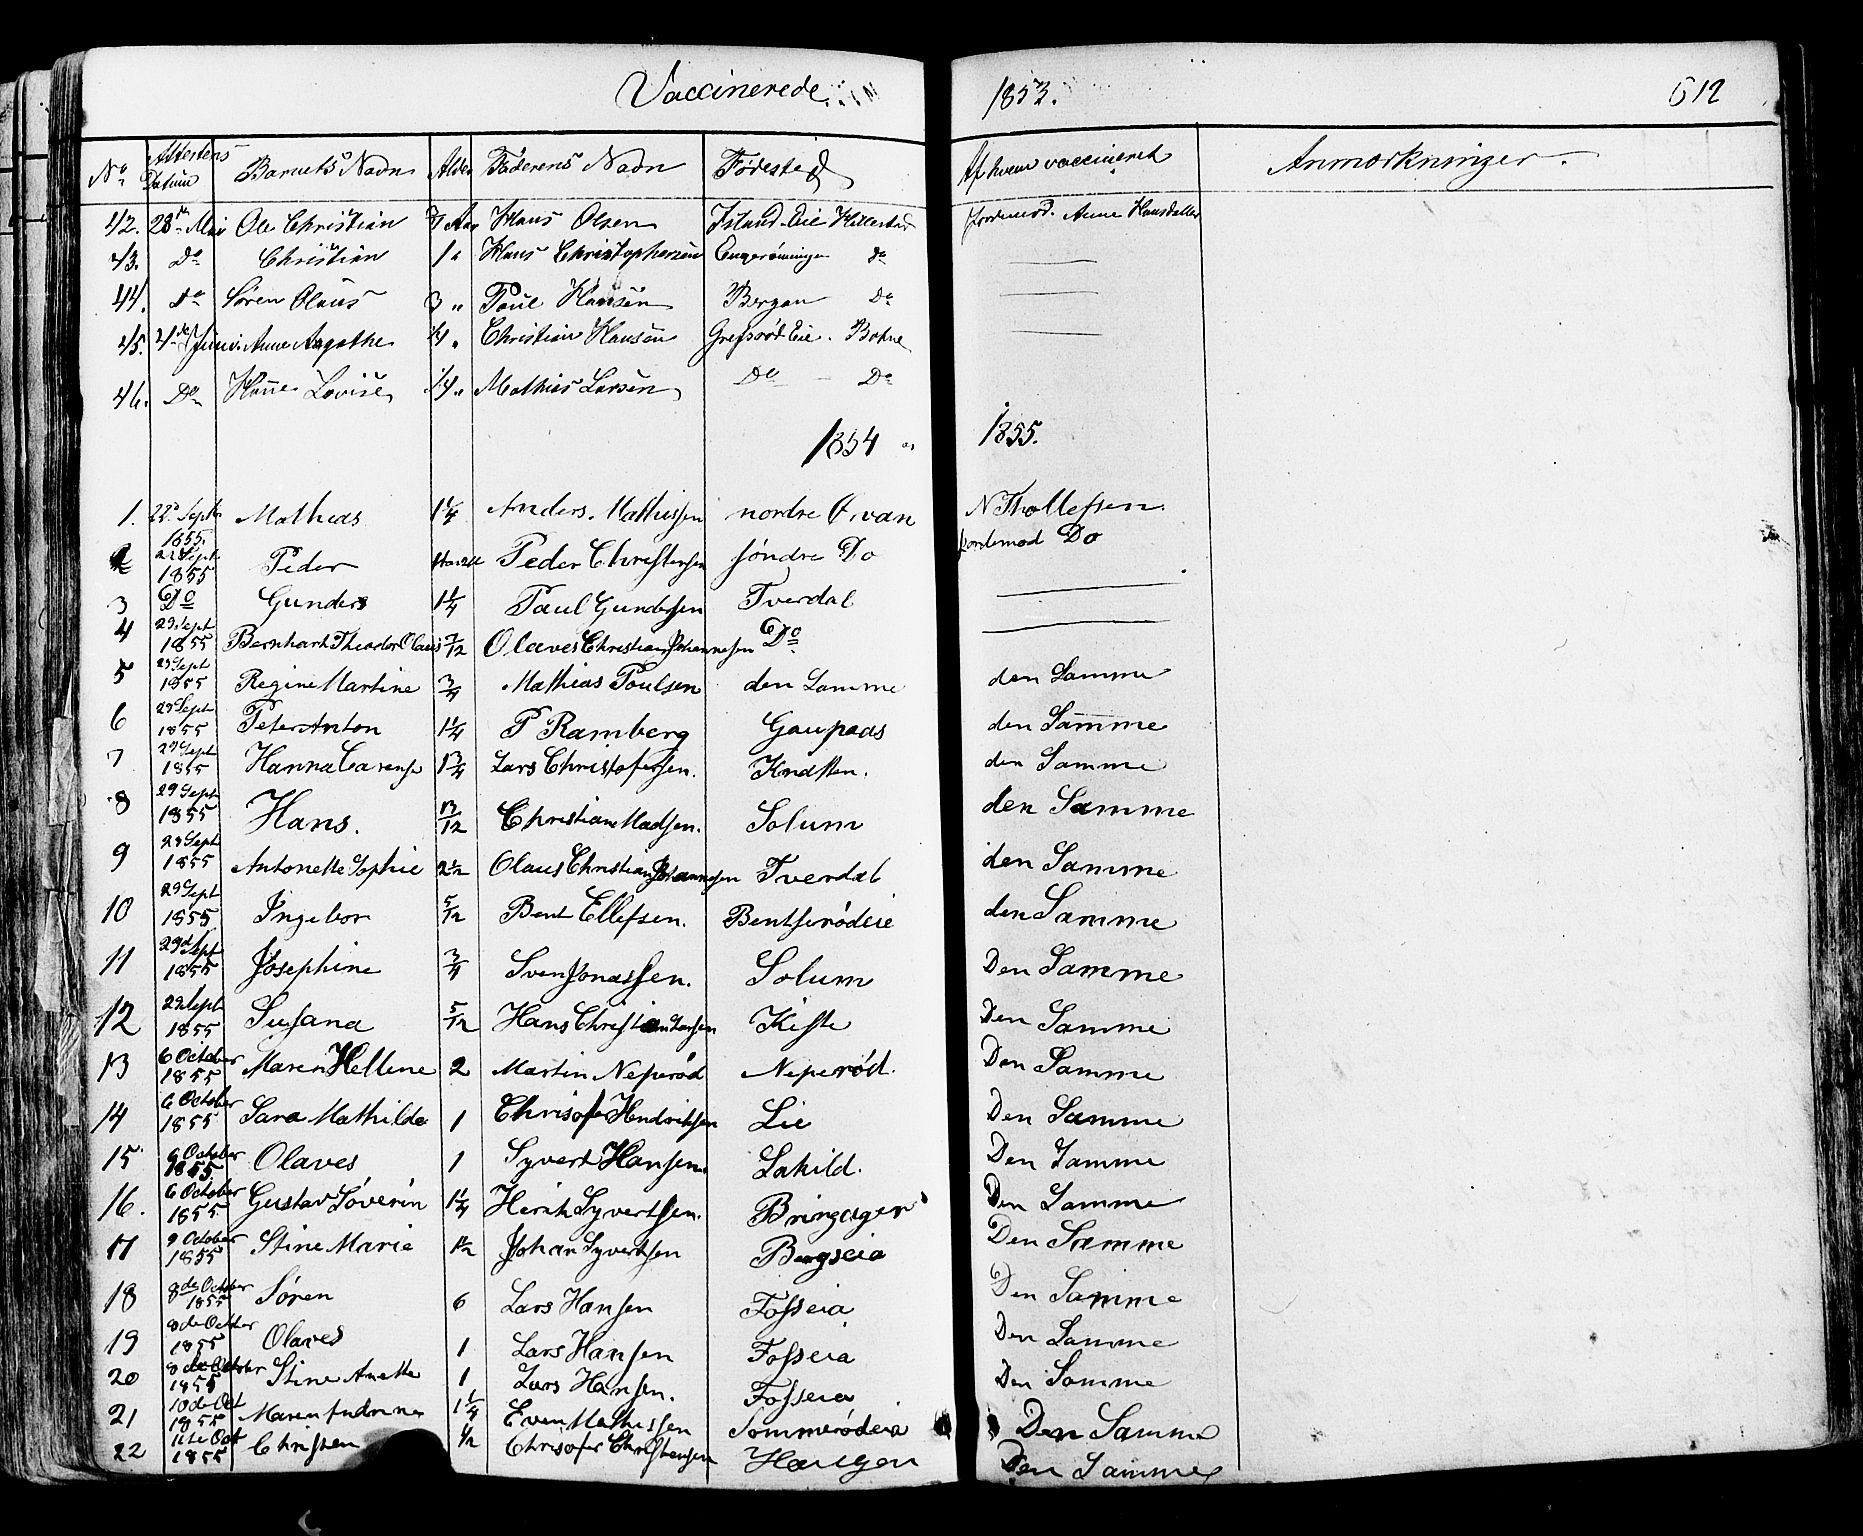 Vaccinerede 1853. 612
No Attestens Datum Barnets Navn Alder Faderens Navn Fødested Af hvem vaccineret Anmærkninger.
42. 28de Mai Ole Christian 3/4 Aar Hans Olsen Island Eie Hillestad Jordemod. Anne Hansdatter
43. Do Christian 1 " Hans Christophersen do
44. Do Søren Olaus 3 " Poul Hansen Bergan Do
45. 4de Juni Anne Aagathe 1/4 " Christian Hansen Grefsrød Eie. Botne
46. Do Hanne Lovise 1/4 " Mathias Larsen Do Do
1854 og 1855.
1. 22de Septb 1855. Mathias 1 1/4 Anders Mathissen nordre Ørvan N Thollefsen
2 22 Sept 1855 Peder Peder Christensen søndre Do Jordemod Do
3 Do Gunders 1 1/4 Paul Gundersen Tverdal
4 29 Sept 1855 Bernhart Theodor Olaus 7/12 Olaves Christian Johannesen Do
5 29 Sept 1855 Regine Martine 3/4 Mathias Poulsen den Samme den Samme
6 29 Sept 1855 Peter Anton 1 1/4 P Ramberg Gaupaas den Samme
7 29 Sept 1855 Hanna Carense 1 3/4 Lars Christofersen. Knatten. den Samme
8 29 Sept 1855 Hans. Christian Madsen. Solum den Samme
9 29 Sept 1855 Antonette Sophie 2 1/2 Olaus Christian Johannesen Tverdal den Samme
10 29 Sept 1855 Ingebor 5/12 Bent Ellefsen. Bentserødeie den Samme
11 29de Sept 1855 Josephine 3/4 Sven Jonassen. Solum Den Samme
12 29 Sept 1855 Susana 5/12 Hans Christian Jansen Kiste Den Samme
13 6 October 1855 Maren Hellene 2 Martin Neperød Neperød. Den Samme
14 6 October 1855 Sara Mathilde 1 Chrisofer Hendriksen Lie Den Samme
15 6 October 1855 Olaves 1 Syvert Hansen Lakild. Den Samme
16. 6 October 1855 Gustav Søverin 1 1/4 Herik Syvertsen. Bringager Den Samme
17 9 October 1855 Stine Marie 1 1/2 Johan Syvertsen Bergseia Den Samme
18 8de October 1855 Søren 6 Lars Hansen Fosseia Den Samme
19 8de October 1855 Olaves 1 Lars Hansen Fosseia Den Samme
20 8de October 1855 Stine Anette 1 Lars Hansen. Fosseia Den Samme
21 10de Oct 1855 Maren Andrine 1 1/4 Even Mathissen Sommerødeia Den Samme
22 11te Oct 1855 Christen 1/2 Chrisofer Christensen Haugen Den Samme